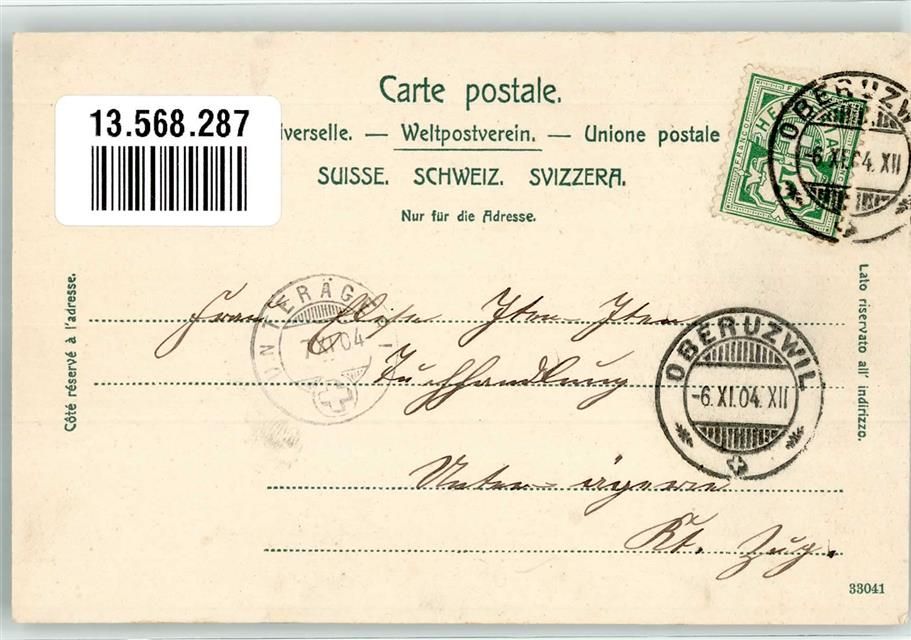 Carte postale.
13.568.287
verselle. — Weltpostverein. — Unione postale
SUISSE. SCHWEIZ. SVIZZERA.
Nur für die Adresse.
OBERUZW
-6.XI.04.XII
Côté réservé à l'adresse.
Lato riservato all' indirizzo.
UNTERÄGERI
7.XI.04
Frau Iten-Iten
Buchhandlung
OBERUZWIL
-6.XI.04.XII
Unter-ägeri
Kt. Zug.
33041